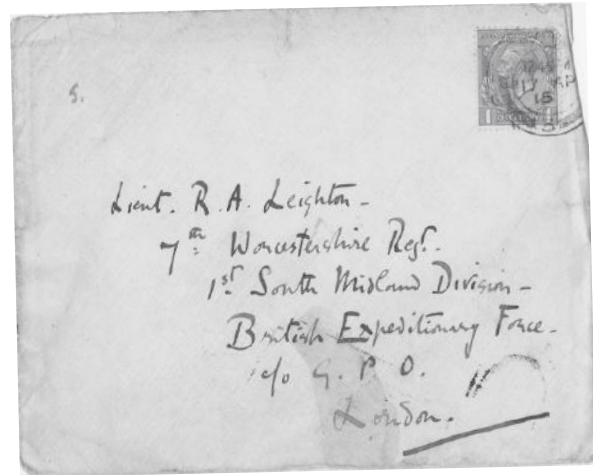 5.
Lieut. R. A. Leighton -
7th Worcestershire Regt. -
1st South Midland Division -
British Expeditionary Force -
c/o G. P. O.
London.
17 AP
15